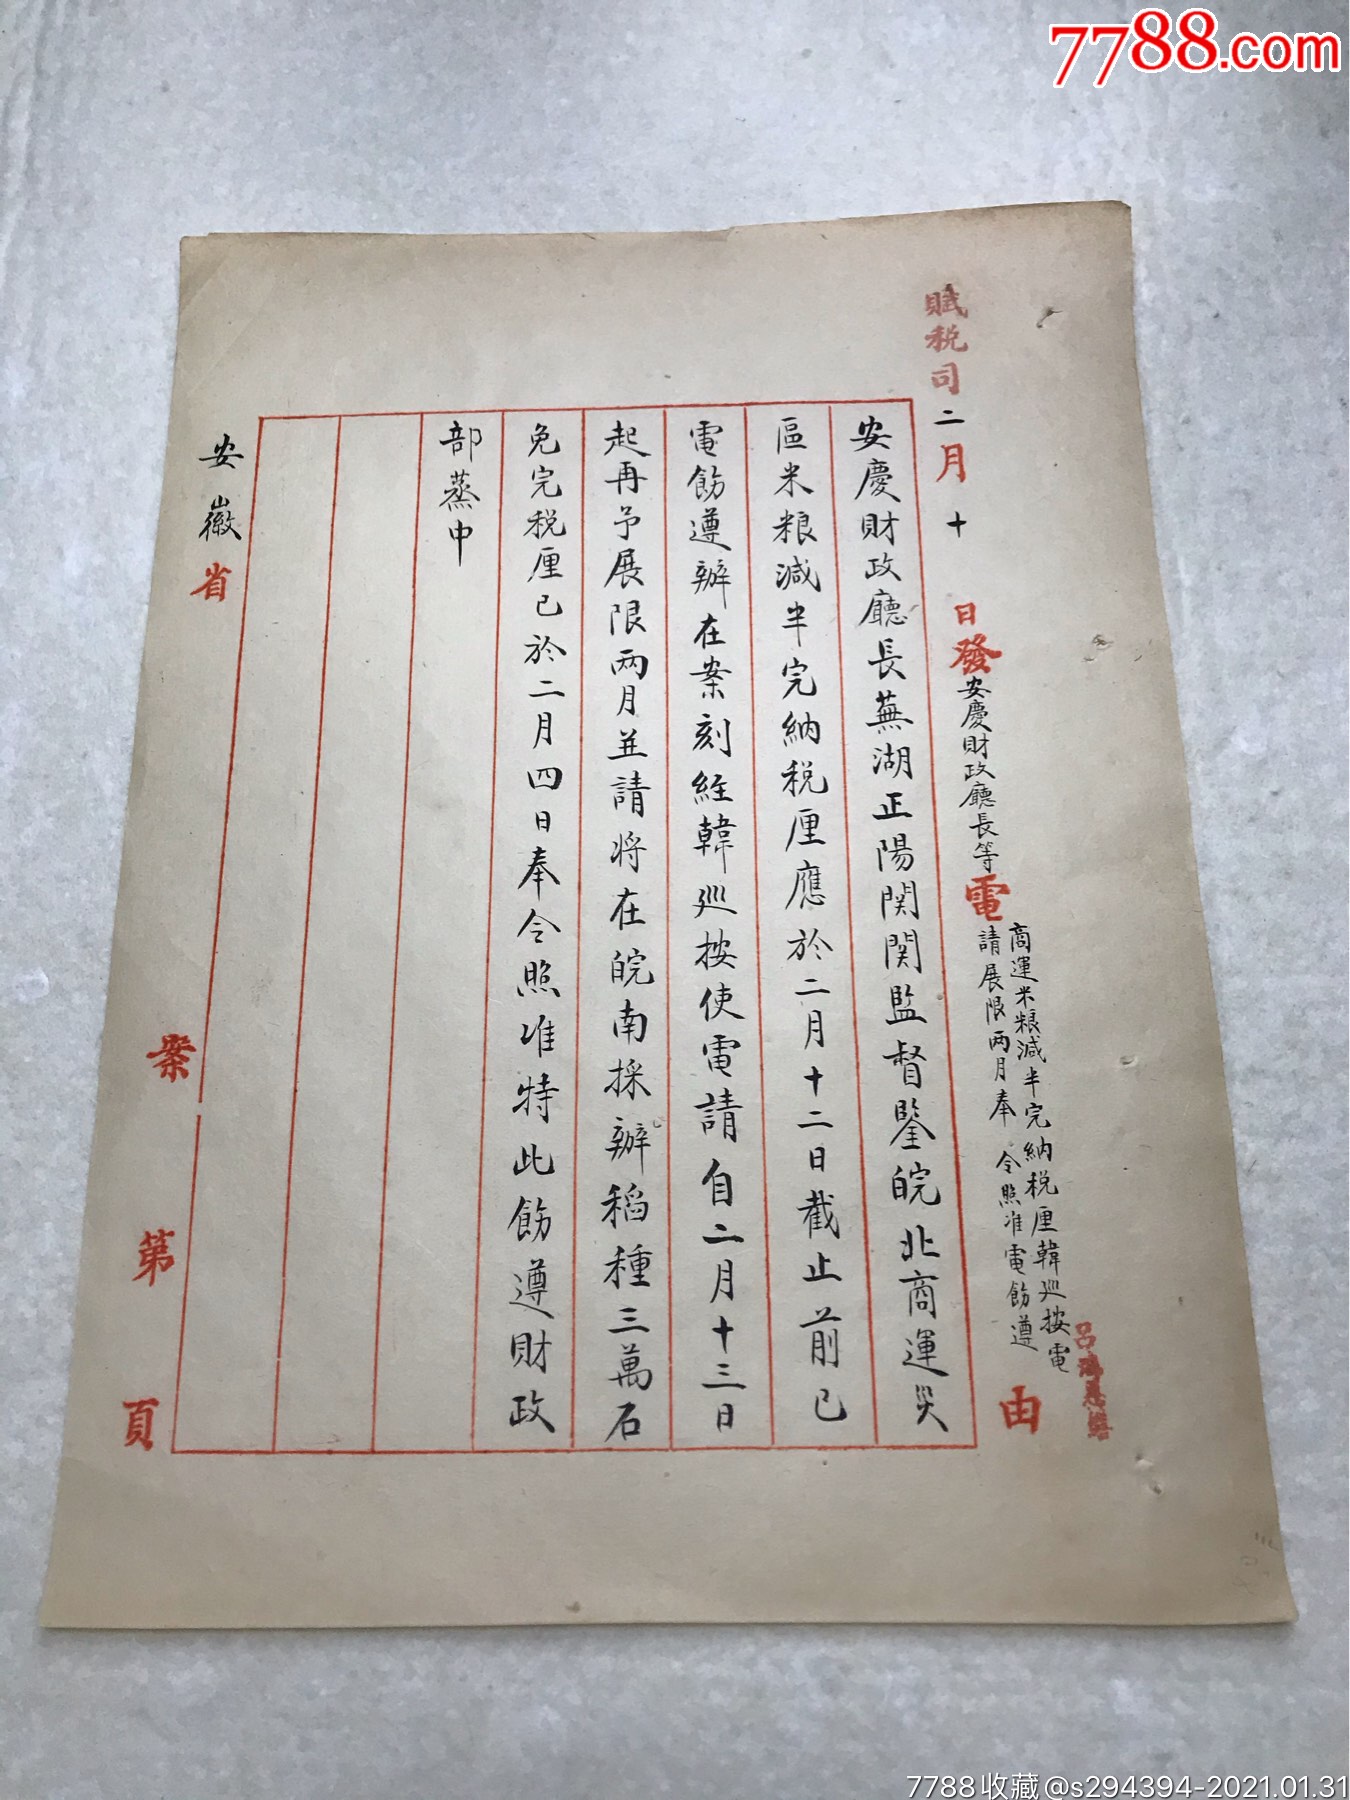 7788.com
賦税司二月十日發安慶財政廳長等電商運米粮減半完納税厘韓巡按電
請展限兩月奉 令照准電飭遵
由
安慶財政廳長蕪湖正陽関関監督鑒皖北商運災
區米粮減半完納税厘應於二月十二日截止前已
電飭遵辦在案刻經韓巡按使電請自二月十三日
起再予展限兩月並請將在皖南採辦稻種三萬石
免完税厘已於二月四日奉令照准特此飭遵財政
部蒸申
安徽省 案 第 頁
7788收藏@s294394-2021.01.31